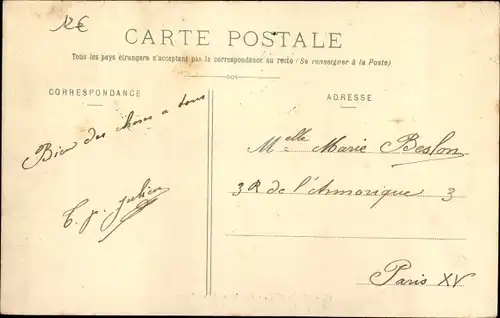 12€
CARTE POSTALE
Tous les pays étrangers n'acceptent pas la correspondance au recto (Se renseigner à la Poste)
CORRESPONDANCE
Bien des choses a tous
Julien
ADRESSE
Melle Marie Beslon
3 R de l'Armorique 3
Paris XV